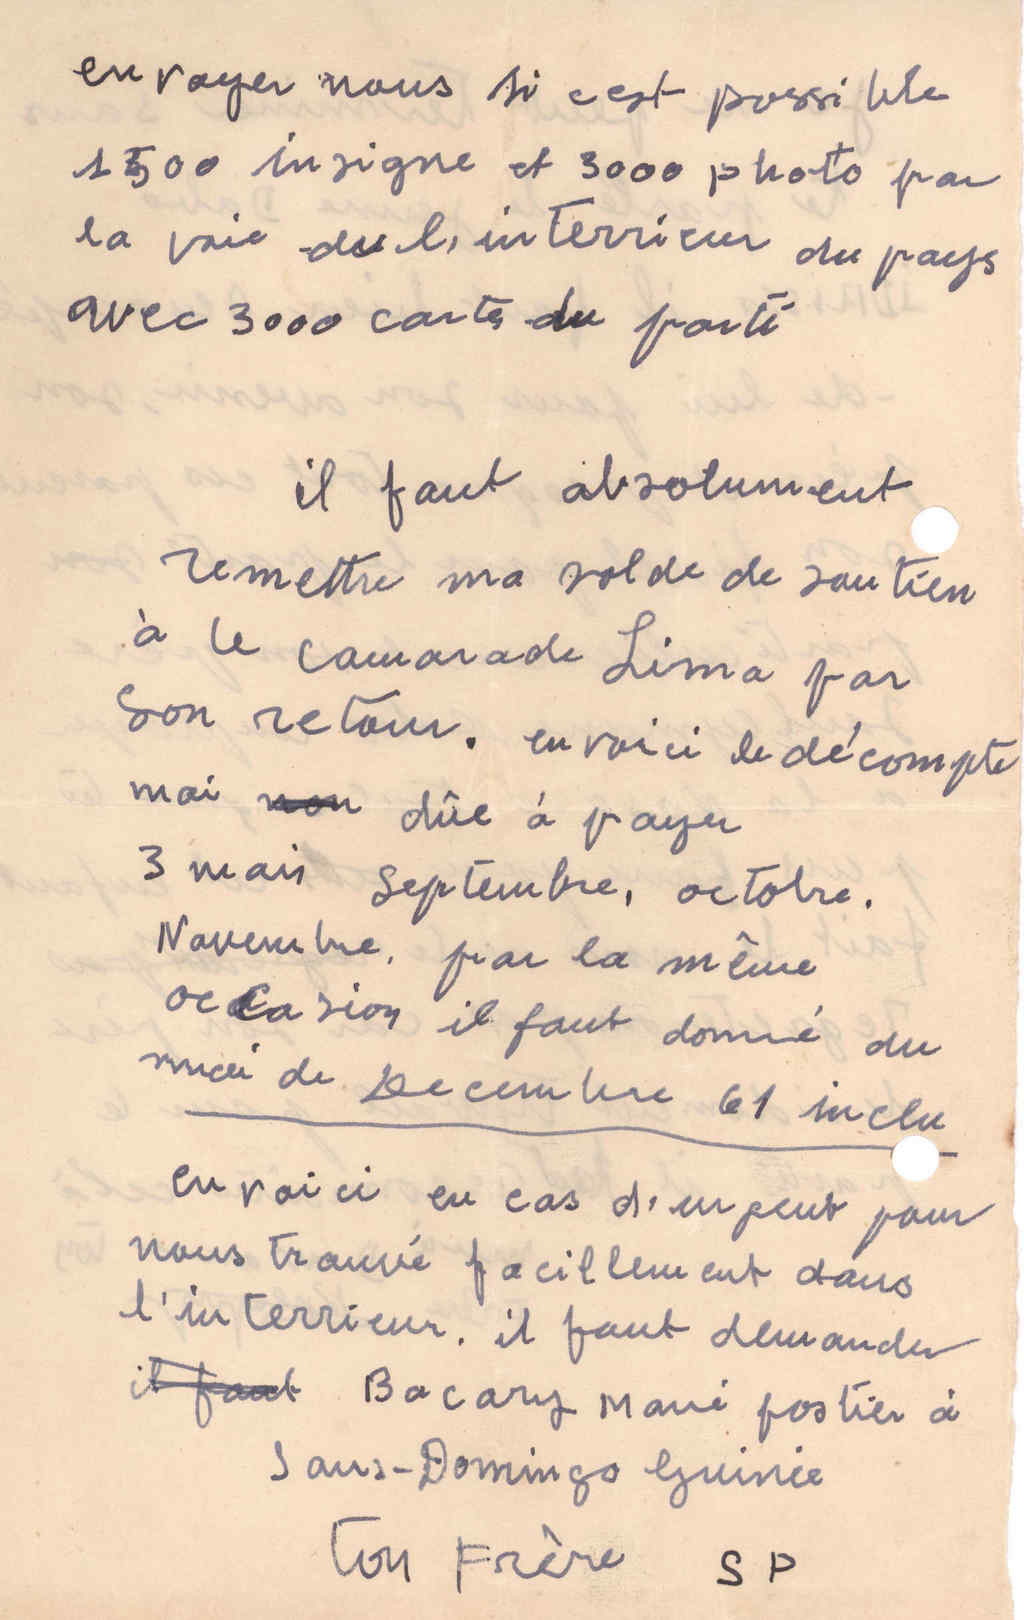 envoyer nous si c est possible
1500 insigne et 3000 photo par
la voie du l, interrieur du pays
avec 3000 carte du parti
il faut absolument
remettre ma solde de soutien
à le camarade Lima par
Son retour. en voici le décompte
moi non dûe à payer
3 mois Septembre, octobre.
Novembre, par la même
occasion il faut donné du
moi de Decembre 61 inclu
en voici en cas d'urgent pour
nous trouvé facillement dans
l'interrieur. il faut demander
il faut Bacary Mané postier à
Sans-Domingo Guinée
Ton Frère SP